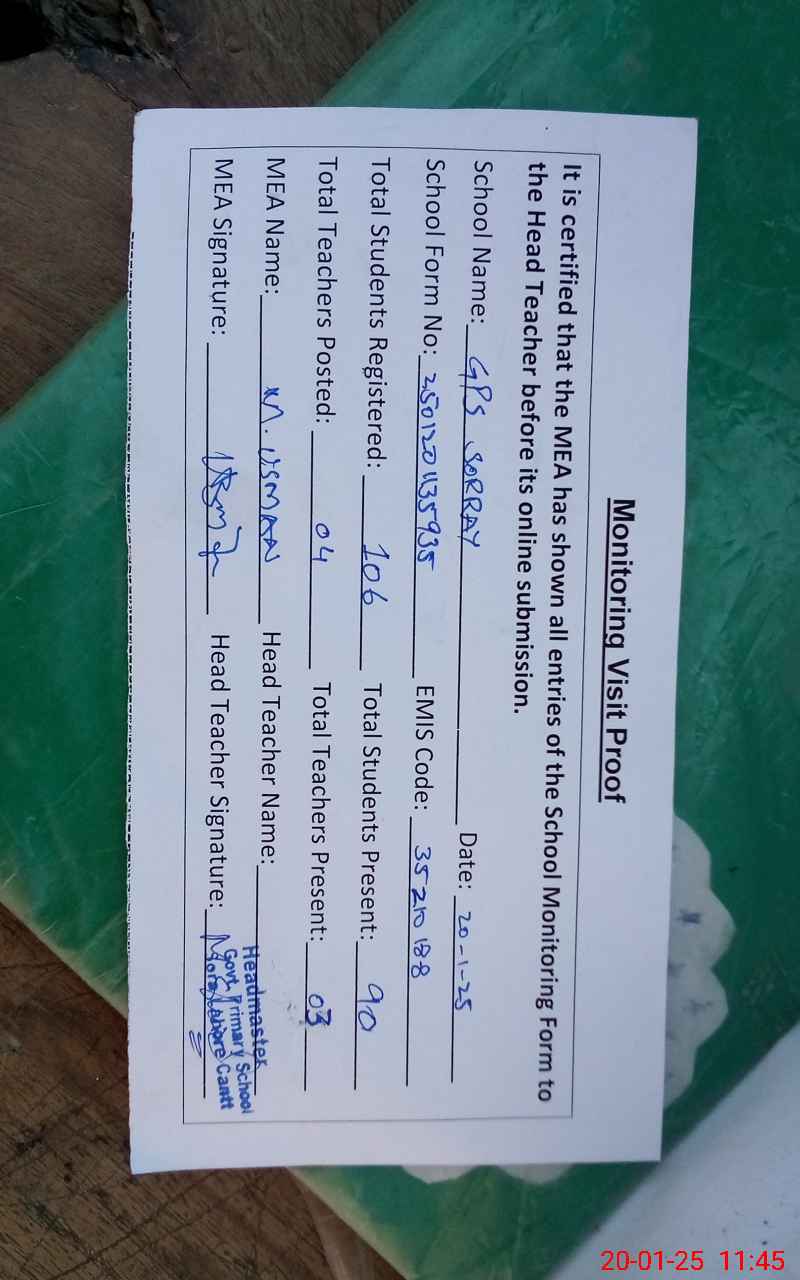 Monitoring Visit Proof
It is certified that the MEA has shown all entries of the School Monitoring Form to
the Head Teacher before its online submission.
School Name: GPS SORRAY Date: 20-1-25
School Form No: 2501201135935 EMIS Code: 35210188
Total Students Registered: 106 Total Students Present: 90
Total Teachers Posted: 04 Total Teachers Present: 03
MEA Name: M. USMAN Head Teacher Name:
MEA Signature: Head Teacher Signature:
Headmaster
Govt. Primary School
Lahore Cantt
20-01-25 11:45